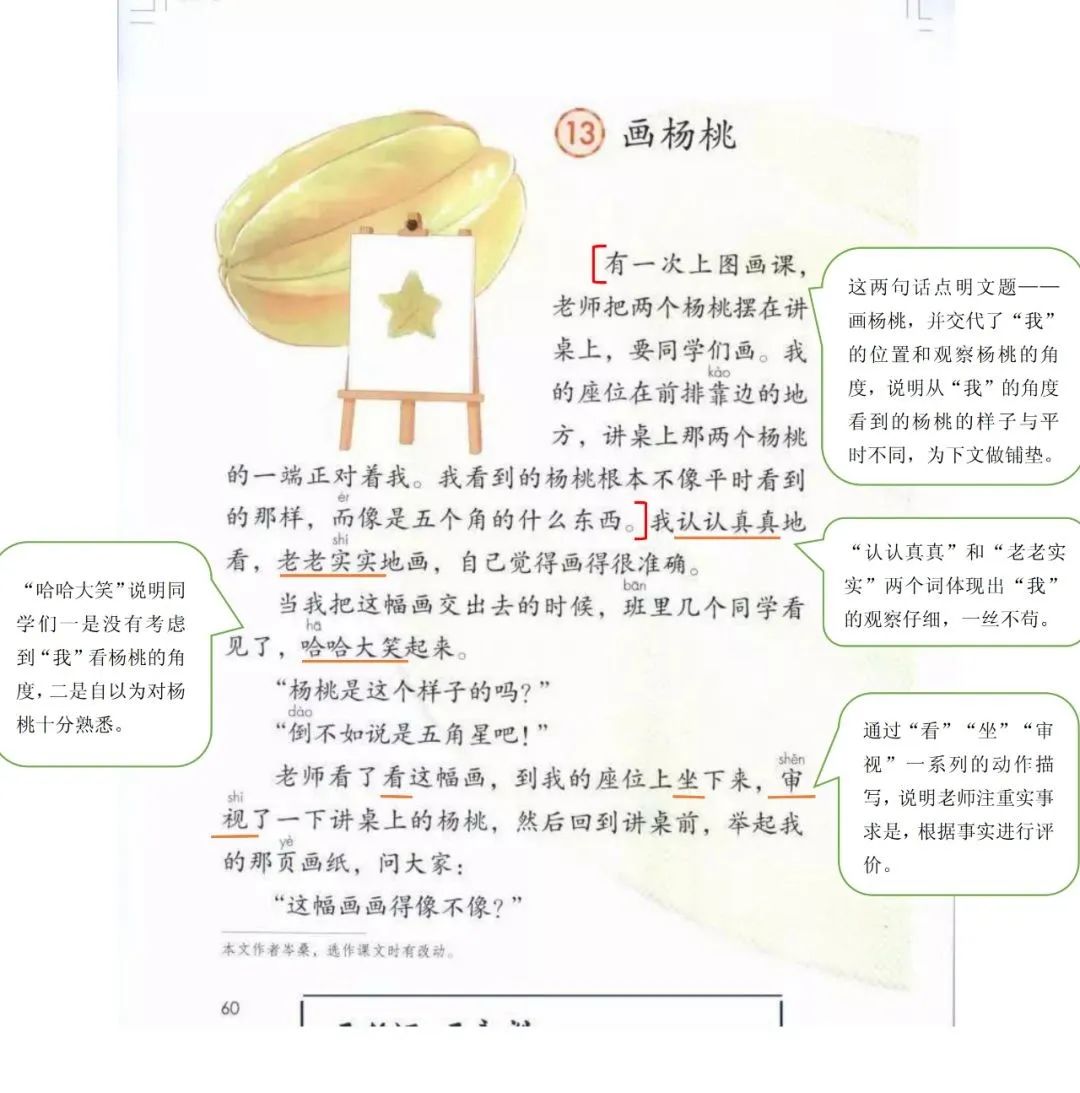 13 画杨桃
有一次上图画课，
老师把两个杨桃摆在讲
桌上，要同学们画。我
kào
的座位在前排靠边的地
方，讲桌上那两个杨桃
的一端正对着我。我看到的杨桃根本不像平时看到
ér
的那样，而像是五个角的什么东西。我认认真真地
shí
看，老老实实地画，自己觉得画得很准确。
bān
当我把这幅画交出去的时候，班里几个同学看
hā
见了，哈哈大笑起来。
“杨桃是这个样子的吗？”
dào
“倒不如说是五角星吧！”
shěn
老师看了看这幅画，到我的座位上坐下来，审
shì
视了一下讲桌上的杨桃，然后回到讲桌前，举起我
yè
的那页画纸，问大家：
“这幅画画得像不像？”
本文作者岑桑，选作课文时有改动。
60
这两句话点明文题——
画杨桃，并交代了“我”
的位置和观察杨桃的角
度，说明从“我”的角度
看到的杨桃的样子与平
时不同，为下文做铺垫。
“认认真真”和“老老实
实”两个词体现出“我”
的观察仔细，一丝不苟。
“哈哈大笑”说明同
学们一是没有考虑
到“我”看杨桃的角
度，二是自以为对杨
桃十分熟悉。
通过“看”“坐”“审
视”一系列的动作描
写，说明老师注重实事
求是，根据事实进行评
价。